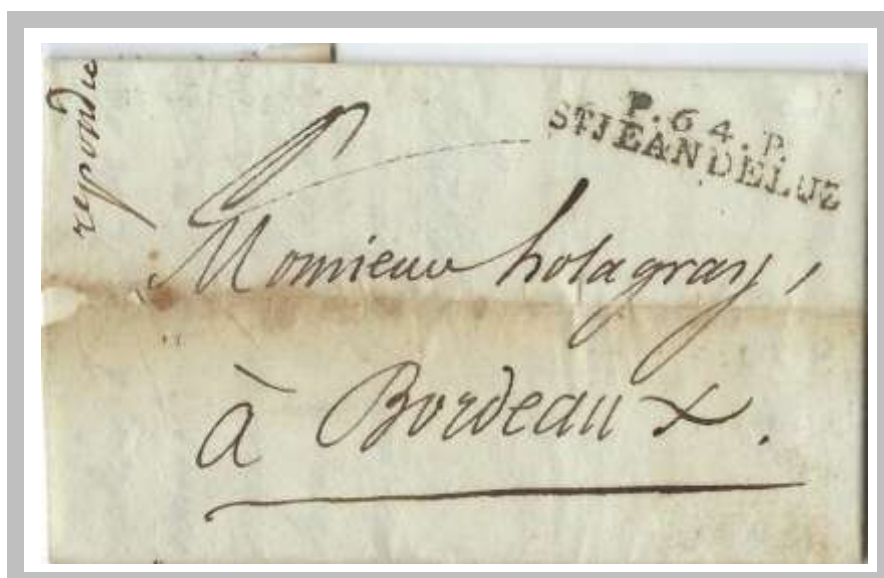 repondu
P. 64. P.
STJEANDELUZ
Monsieur holagray,
à Bordeaux.